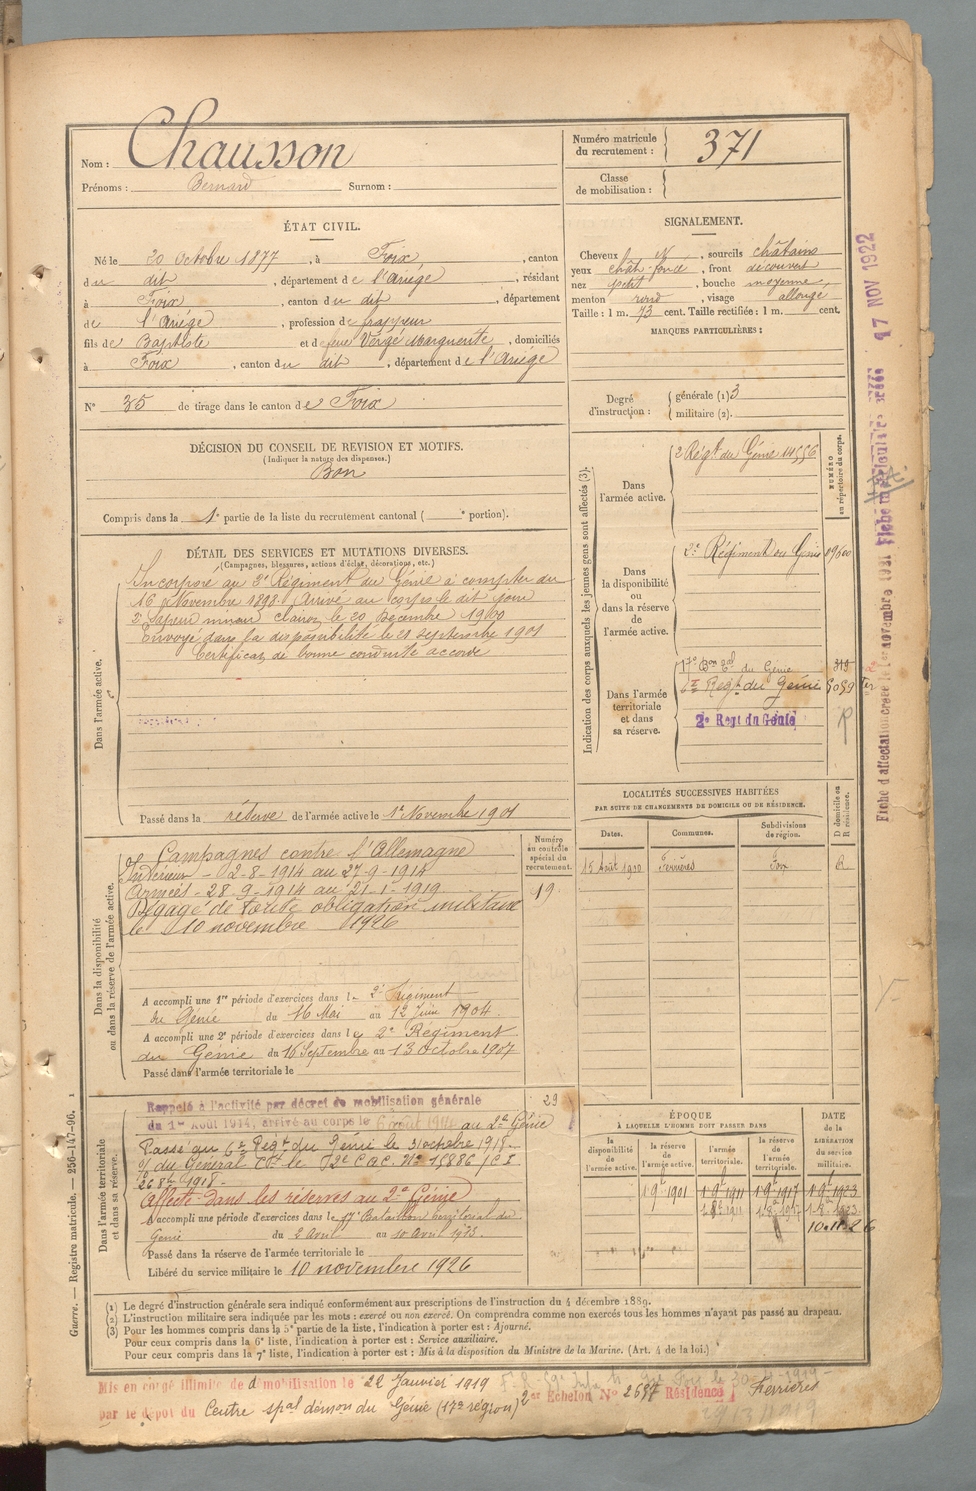 Nom : Chausson
Prénoms : Bernard Surnom :
Numéro matricule
du recrutement : 371
Classe
de mobilisation :
ÉTAT CIVIL.
Né le 20 Octobre 1877, à Foix, canton
du dit, département de l'Ariège, résidant
à Foix, canton du dit, département
de l'Ariège, profession de frappeur
fils de Baptiste et de feue Vergé Marguerite, domiciliés
à Foix, canton du dit, département de l'Ariège
N° 35 de tirage dans le canton de Foix
SIGNALEMENT.
Cheveux N, sourcils châtains
yeux chât. foncé, front découvert
nez petit, bouche moyenne
menton rond, visage allongé
Taille : 1 m. 73 cent. Taille rectifiée : 1 m. cent.
MARQUES PARTICULIÈRES :
Degré
d'instruction :
générale (1) 3
militaire (2).
DÉCISION DU CONSEIL DE REVISION ET MOTIFS.
(Indiquer la nature des dispenses.)
Bon
Compris dans la 1e partie de la liste du recrutement cantonal ( e portion).
DÉTAIL DES SERVICES ET MUTATIONS DIVERSES.
(Campagnes, blessures, actions d'éclat, décorations, etc.)
Dans l'armée active.
Incorporé au 2e Régiment du Génie à compter du
16 Novembre 1898. Arrivé au corps le dit jour
2e Sapeur mineur clairon le 20 Décembre 1900
Envoyé dans la disponibilité le 21 septembre 1901
Certificat de bonne conduite accordé
Passé dans la réserve de l'armée active le 1er Novembre 1901
Indication des corps auxquels les jeunes gens sont affectés (3).
NUMÉRO
au répertoire du corps.
Dans
l'armée active.
2 Régt du Génie 14556
Dans
la disponibilité
ou
dans la réserve
de
l'armée active.
2e Régiment du Génie
Dans l'armée
territoriale
et dans
sa réserve.
17e Bon du Génie 319
6e Régt du Génie 5059 Ter
2e Regt du Génie R
LOCALITÉS SUCCESSIVES HABITÉES
PAR SUITE DE CHANGEMENTS DE DOMICILE OU DE RÉSIDENCE.
Dates.
Communes.
Subdivisions
de région.
D domicile ou
R résidence.
15 Août 1920 Ferrières Foix R
Dans la disponibilité
ou dans la réserve de l'armée active.
Numéro
au contrôle
spécial du
recrutement.
19
Campagnes contre l'Allemagne
Intérieur - 2-8-1914 au 27-9-1914
Armées - 28-9-1914 au 21-1-1919
Dégagé de toute obligation militaire
le 10 novembre 1926
A accompli une 1re période d'exercices dans le 2e Régiment
du Génie du 16 Mai au 12 Juin 1904.
A accompli une 2e période d'exercices dans le 2e Régiment
du Génie du 16 Septembre au 13 Octobre 1907
Passé dans l'armée territoriale le
Dans l'armée territoriale
et dans sa réserve.
29
Rappelé à l'activité par décret de mobilisation générale
du 1er Août 1914, arrivé au corps le 6 août 1914 au 2e Génie
Passé au 6e Régt du Génie le 31 octobre 1918.
Affecté dans les réserves au 2e Génie
A accompli une période d'exercices dans le 17e Bataillon territorial du
Génie du 2 Avril au 10 Avril 1913.
Passé dans la réserve de l'armée territoriale le
Libéré du service militaire le 10 novembre 1926
ÉPOQUE
À LAQUELLE L'HOMME DOIT PASSER DANS
la
disponibilité
de
l'armée active.
la réserve
de
l'armée active.
l'armée
territoriale.
la réserve
de
l'armée
territoriale.
DATE
de la
LIBÉRATION
du service
militaire.
1 9e 1901 1 9e 1911 1 9e 1917 1 9e 1923
10.11.26
(1) Le degré d'instruction générale sera indiqué conformément aux prescriptions de l'instruction du 4 décembre 1889.
(2) L'instruction militaire sera indiquée par les mots : exercé ou non exercé. On comprendra comme non exercés tous les hommes n'ayant pas passé au drapeau.
(3) Pour les hommes compris dans la 5e partie de la liste, l'indication à porter est : Ajourné.
Pour ceux compris dans la 6e liste, l'indication à porter est : Service auxiliaire.
Pour ceux compris dans la 7e liste, l'indication à porter est : Mis à la disposition du Ministre de la Marine. (Art. 4 de la loi.)
Mis en congé illimité de démobilisation le 22 Janvier 1919 2e Echelon N° 2687 Résidence Ferrières
par le dépot du Centre spal démon du Génie (17e région)
Guerre. — Registre matricule. — 256-147-96.
17 NOV 1922